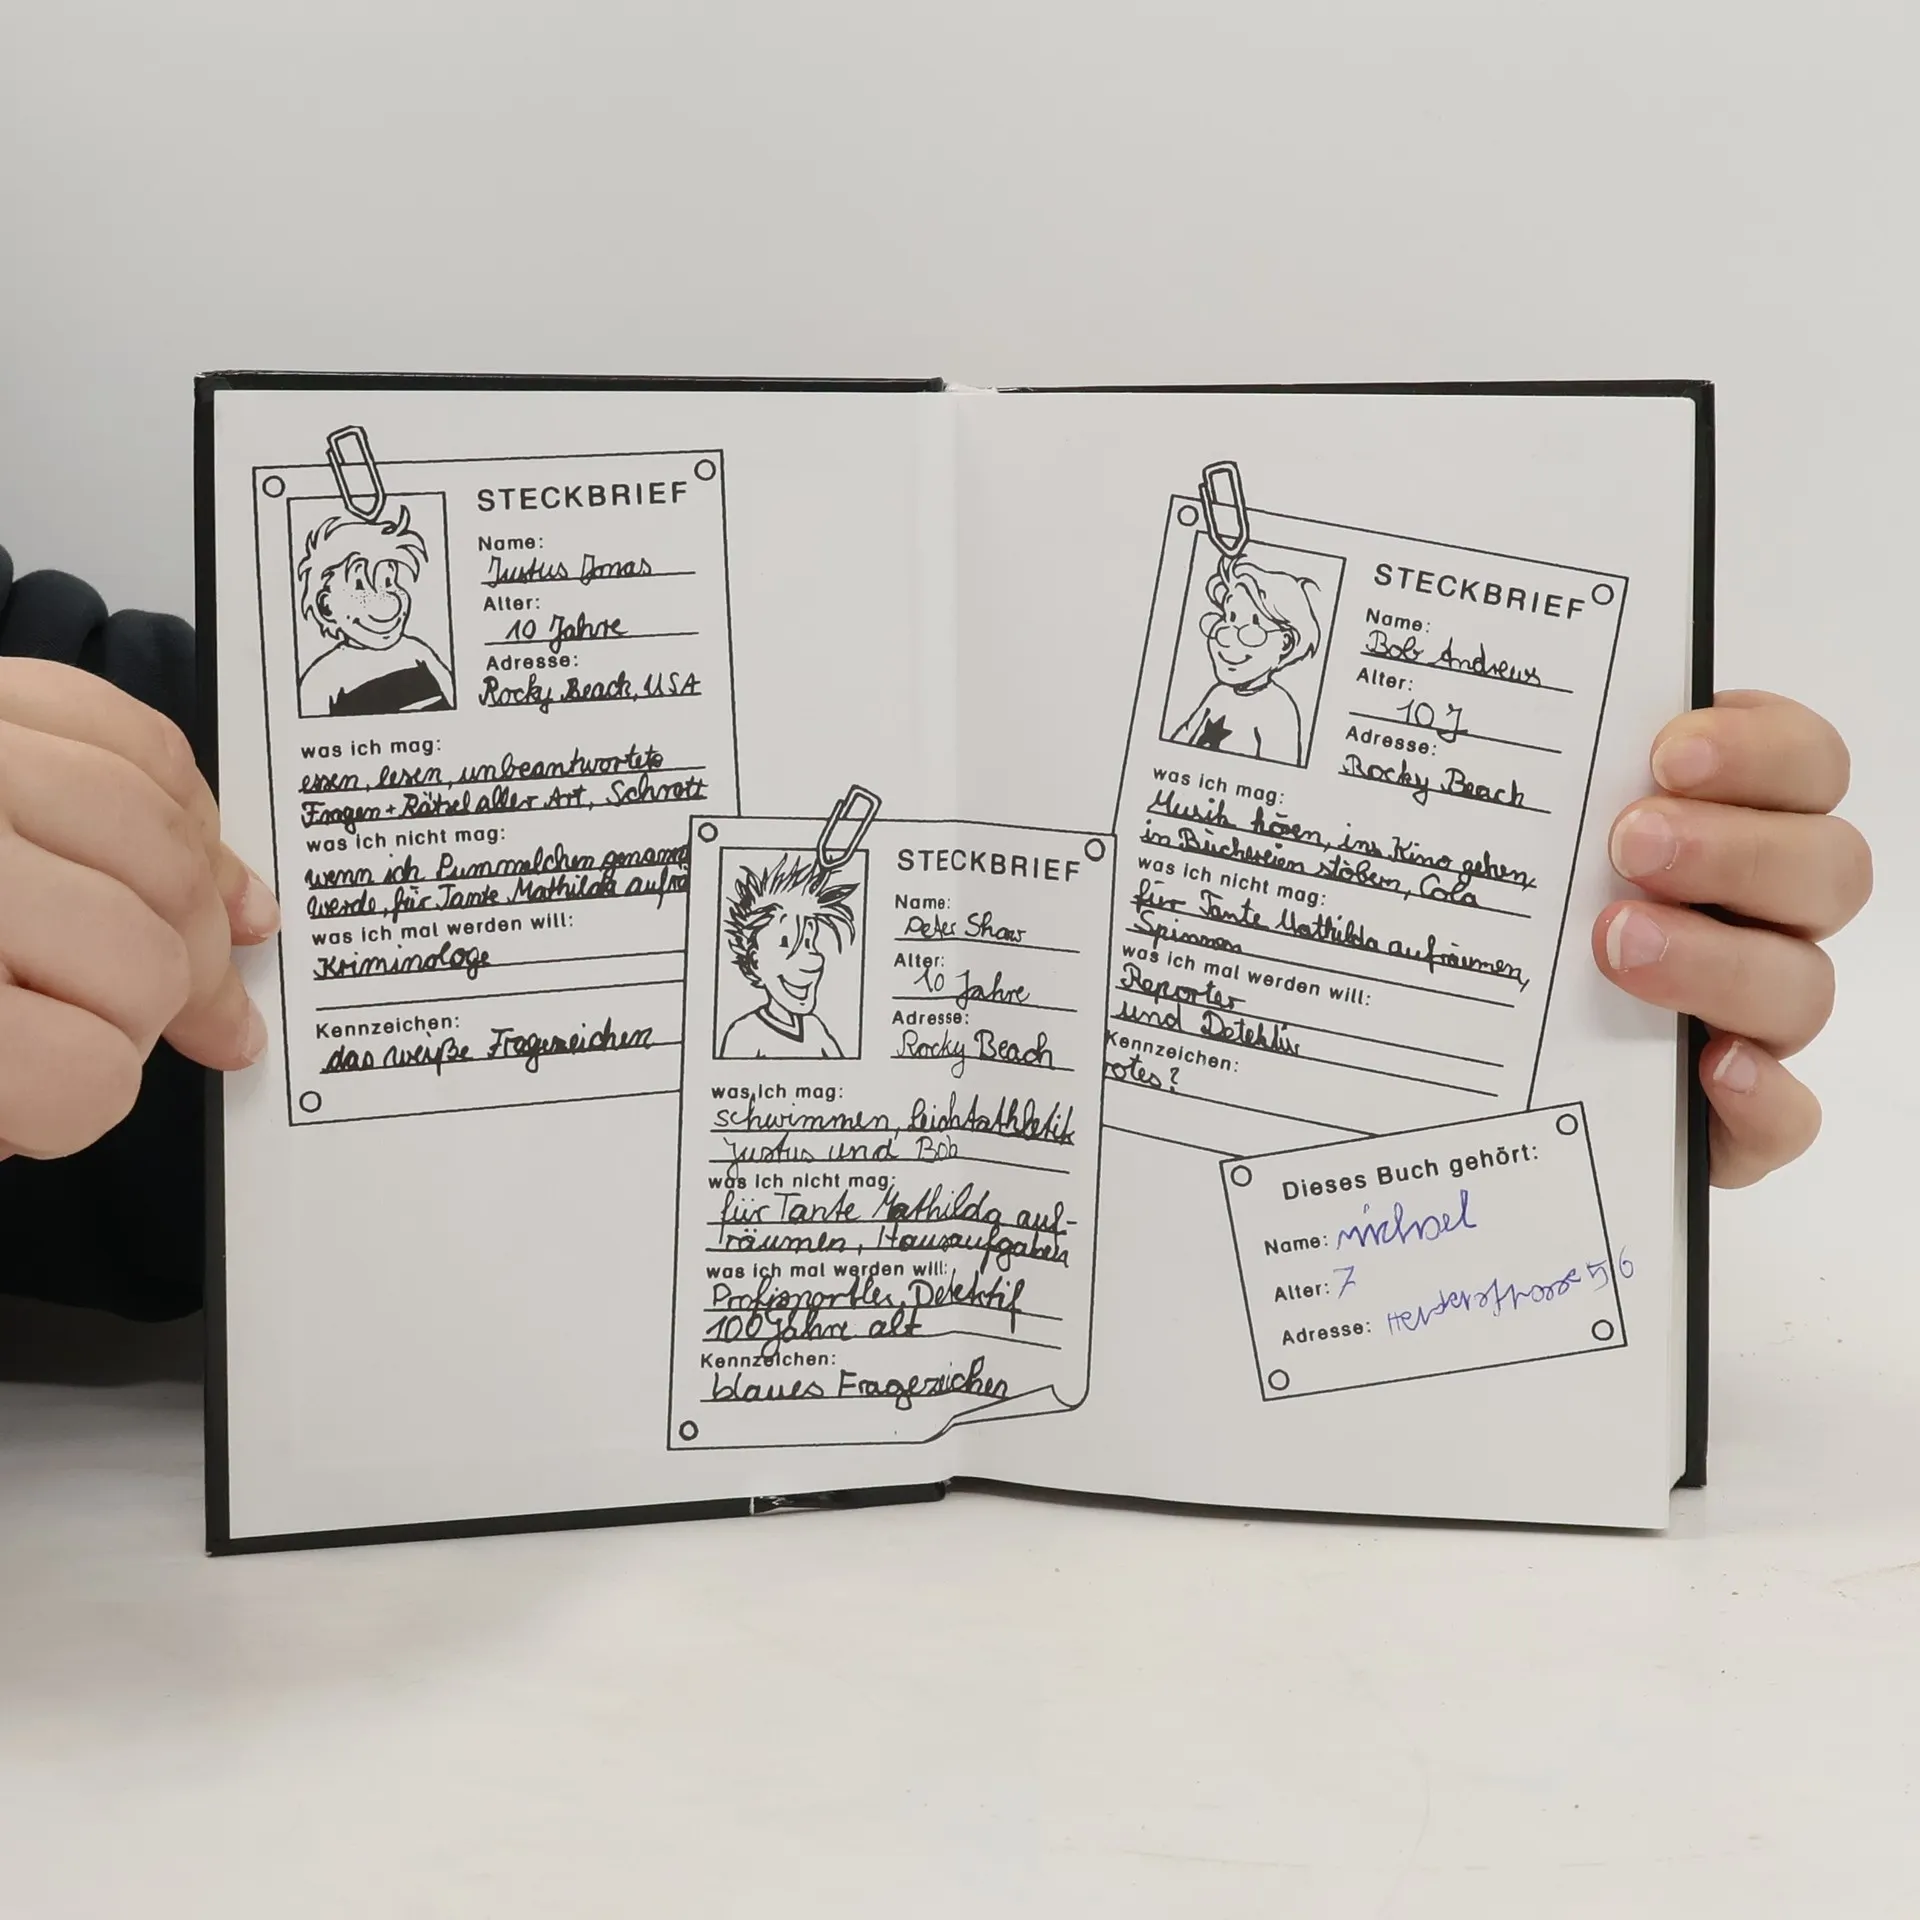 STECKBRIEF
Name:
Justus Jonas
Alter:
10 Jahre
Adresse:
Rocky Beach, USA
was ich mag:
essen, lesen, unbeantwortete
Fragen + Rätsel aller Art, Schrott
was ich nicht mag:
wenn ich Pummelchen genannt
werde, für Tante Mathilda aufrä
was ich mal werden will:
Kriminologe
Kennzeichen:
das weiße Fragezeichen
STECKBRIEF
Name:
Peter Shaw
Alter:
10 Jahre
Adresse:
Rocky Beach
was ich mag:
schwimmen, Leichtathletik
Justus und Bob
was ich nicht mag:
für Tante Mathilda auf-
räumen, Hausaufgaben
was ich mal werden will:
Profisportler, Detektif
100 Jahre alt
Kennzeichen:
blaues Fragezeichen
STECKBRIEF
Name:
Bob Andrews
Alter:
10 J
Adresse:
Rocky Beach
was ich mag:
Musik hören, ins Kino gehen,
in Büchereien stöbern, Cola
was ich nicht mag:
für Tante Mathilda aufräumen,
Spinnen
was ich mal werden will:
Reporter
und Detektiv
Kennzeichen:
rotes ?
Dieses Buch gehört:
Name: michael
Alter: 7
Adresse: 56